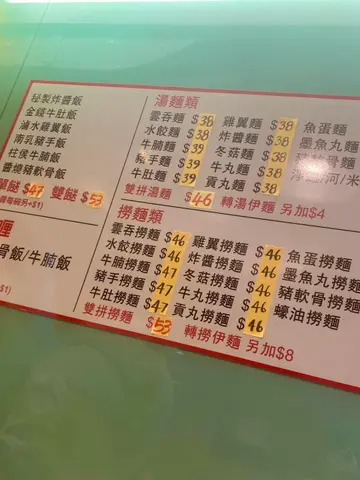 秘製炸醬飯
金錢牛肚飯
滷水雞翼飯
南乳豬手飯
柱侯牛腩飯
醬燒豬軟骨飯
餸 $47 雙餸 $53
+$1)
骨飯/牛腩飯
$1)
湯麵類
雲吞麵 $38 雞翼麵 $38 魚蛋麵
水餃麵 $38 炸醬麵 $38 墨魚丸麵
牛腩麵 $39 冬菇麵 $38
豬手麵 $39 牛丸麵 $38 河/米
牛肚麵 $39 貢丸麵 $38
雙拼湯麵 $46 轉湯伊麵 另加$4
撈麵類
雲吞撈麵 $46 雞翼撈麵 $46 魚蛋撈麵
水餃撈麵 $46 炸醬撈麵 $46 墨魚丸撈麵
牛腩撈麵 $47 冬菇撈麵 $46 豬軟骨撈麵
豬手撈麵 $47 牛丸撈麵 $46 蠔油撈麵
牛肚撈麵 $47 貢丸撈麵 $46
雙拼撈麵 $53 轉撈伊麵 另加$8